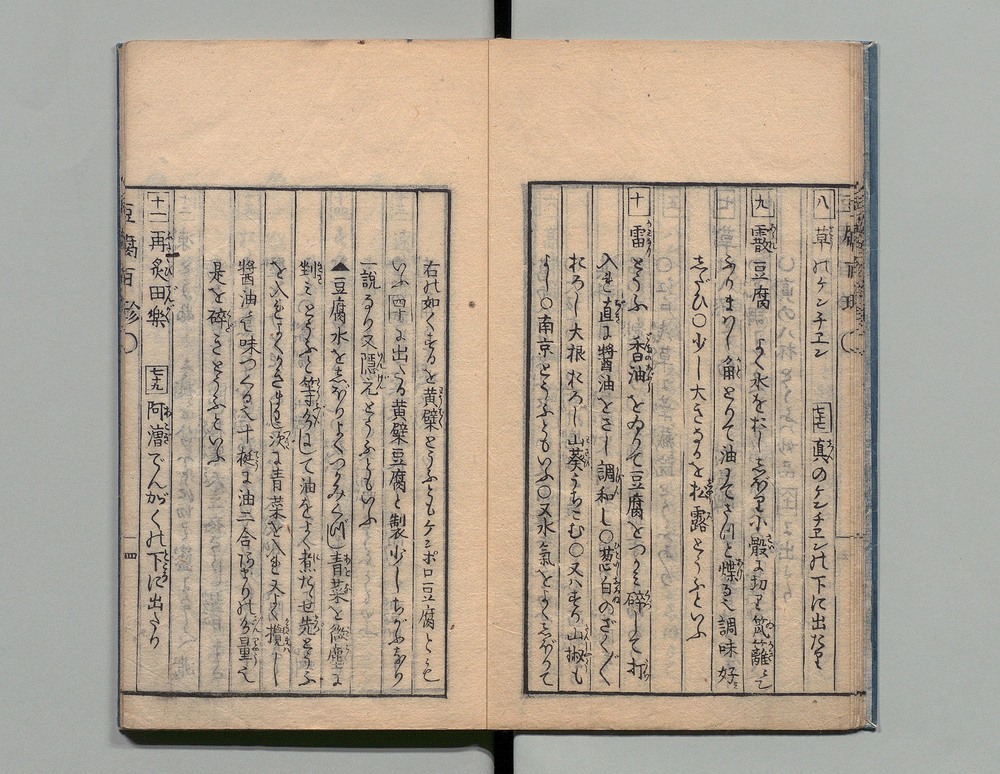 八 草のケンチヱン 七十七 真のケンチヱンの下に出たり
九 霰豆腐 よく水をおししぼり小骰に切り笊籬にて
ふりまはし角とりて油にてさつと煠る也調味好
しだひ〇少し大きなるを松露とうふといふ
十 雷とうふ 香油をゐりて豆腐をつかみ砕して打
入れ直に醤油をさし調和し〇葱白のざく〱
おろし大根おろし山葵うちこむ〇又はすり山椒も
よし〇南京とうふともいふ〇又水氣をよくしぼりて
右の如くするを黄檗とうふともケンポロ豆腐とも
いふ 四十 に出たる黄檗豆腐と製少しちがふなり
一説あり又隠元とうふともいふ
▲豆腐水をしぼりよくつかみくづし青菜を微塵に
剉みとうふと等分にして油をよく煮たゝせ先とうふ
を入れよくかきまぜ次に青菜を入れ又よく攪し
醤油にて味つくる也十挺に油二合ばかりの分量也
是を砕きとうふといふ
十一 再炙田樂 七十九 阿漕でんがくの下に出たり
豆腐百珍 〇 四